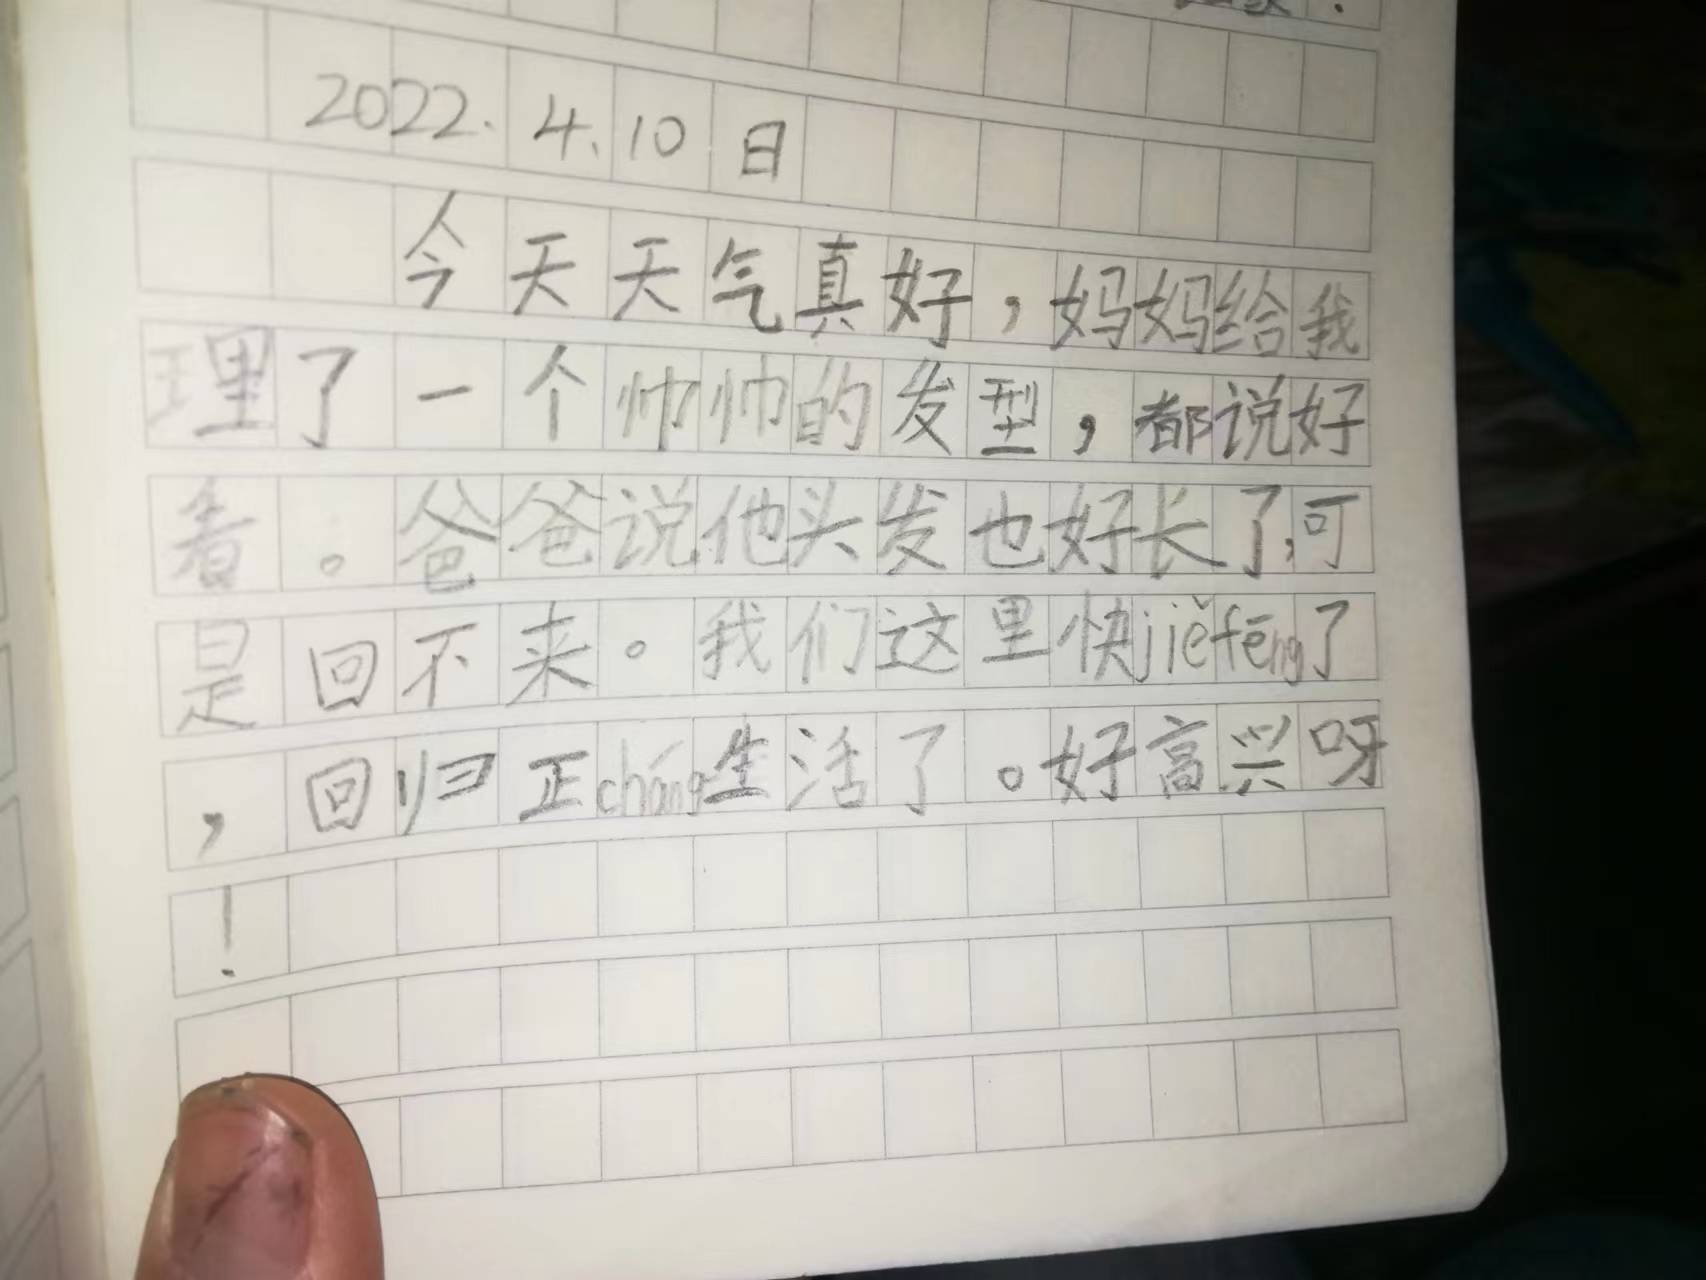 2022.4.10日
今天天气真好,妈妈给我
理了一个帅帅的发型,都说好
看。爸爸说他头发也好长了,可
是回不来。我们这里快jiěfēng了
,回归正cháng生活了。好高兴呀
!